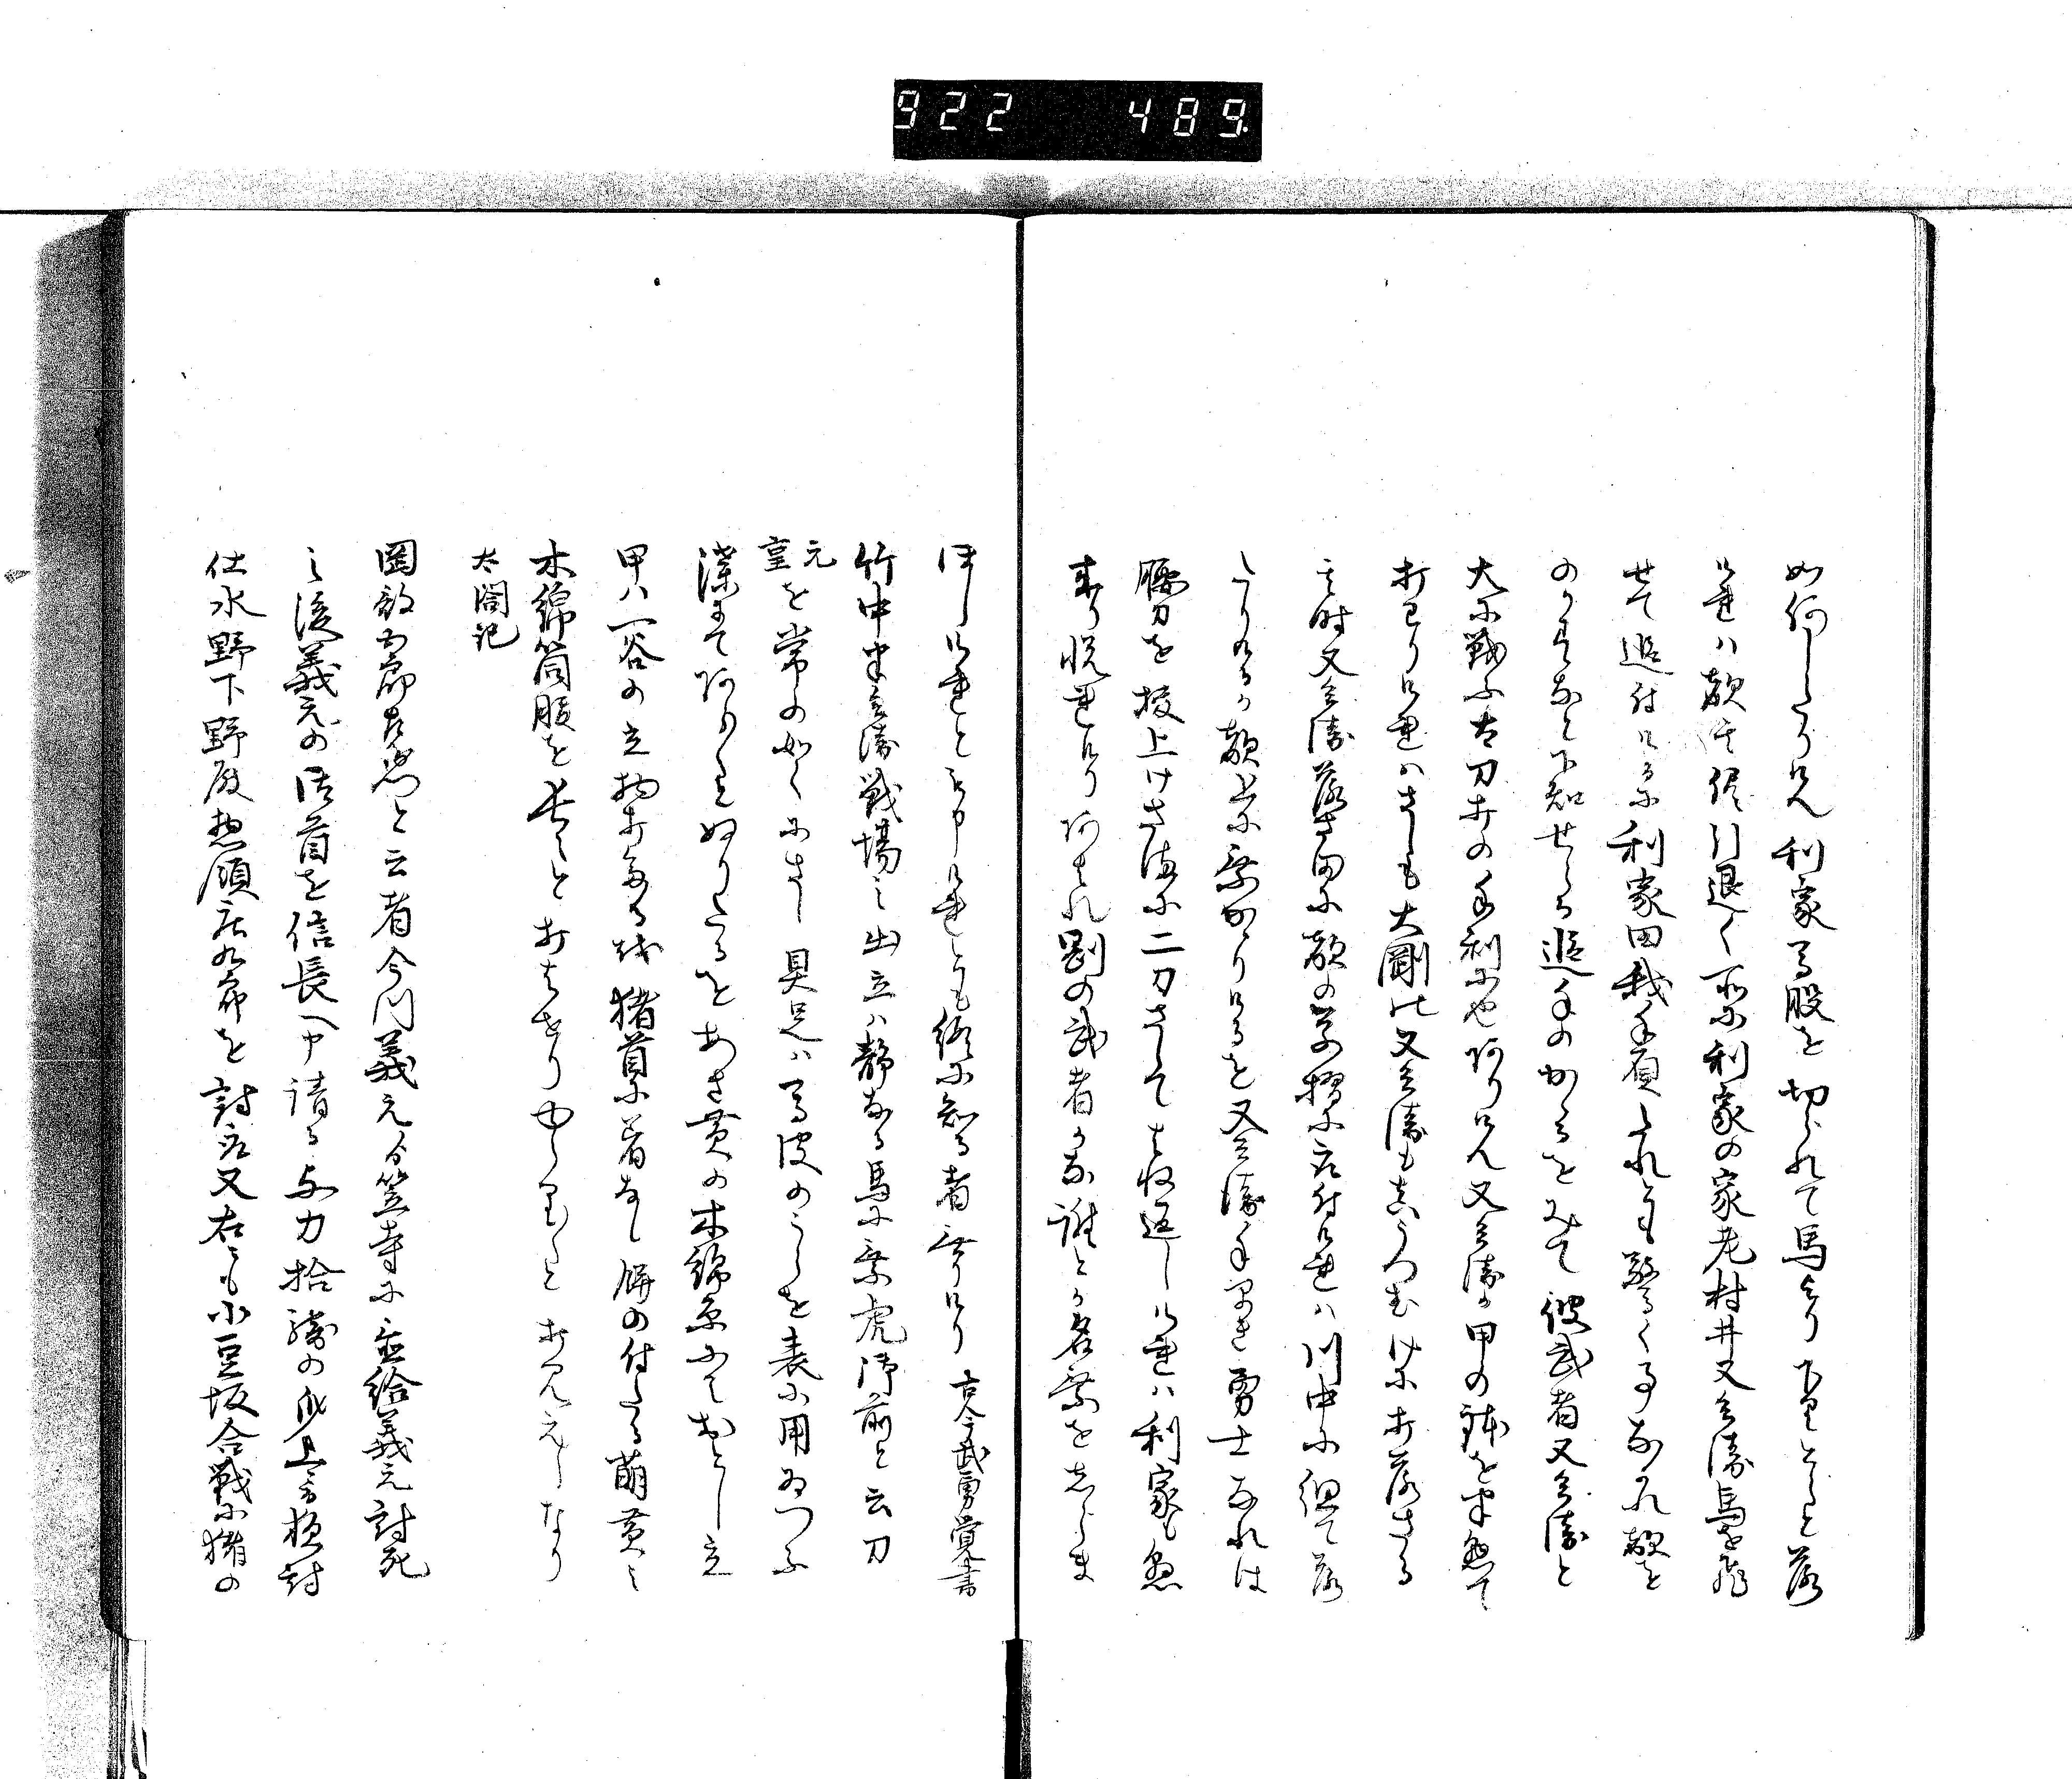 922 489
如何したりけん利家馬股を切られて馬より下里と落
けれハ敵其侭引退く所に利家の家老村井又兵衛馬を飛
せて追付けるに利家田我手負たれとも驚く事なかれ敵を
のかすなと下知せらる追手のかゝるをみて彼武者又兵衛と
大に戦ふ太刀打の手利にや有けん又兵衛か甲の鉢を半急て
打わりけれハさしも大剛の又兵衛もうつむけに打落さる
其時又兵衛落さまに敵の草摺に取付けれハ川中に組て落
たりけるか敵上に乗かゝりけるを又兵衛手早き勇士なれは
腰刀を抜上けさまに二刀さしてはね返しけれハ利家も急
来り悦れけりあはれ剛の武者かな誰とか名乗をしらま
ほしけれと申けれとも終に知る者無りけり 古今武勇覚書
竹中半兵衛戦場之出立ハ静なる馬に乗虎御前と云刀
元重を常の如くにさし具足ハ馬皮のうらを表に用ゐつふ
漆にてあらくぬりたるをあさ黄の木綿糸にておとし立
甲ハ一谷の立物打たるを猪首に着なし餅の付たる萌黄之
木綿筒服を長々と打はをりゆらりと打見えしなり
太閤記
岡部五郎兵衛と云者今川義元より笠寺に置給義元討死
之後義元の御首を信長へ申請る与力拾騎の成上言様討
仕水野下野殿惣領藤九郎を討取又右にも小豆坂合戦に猪の